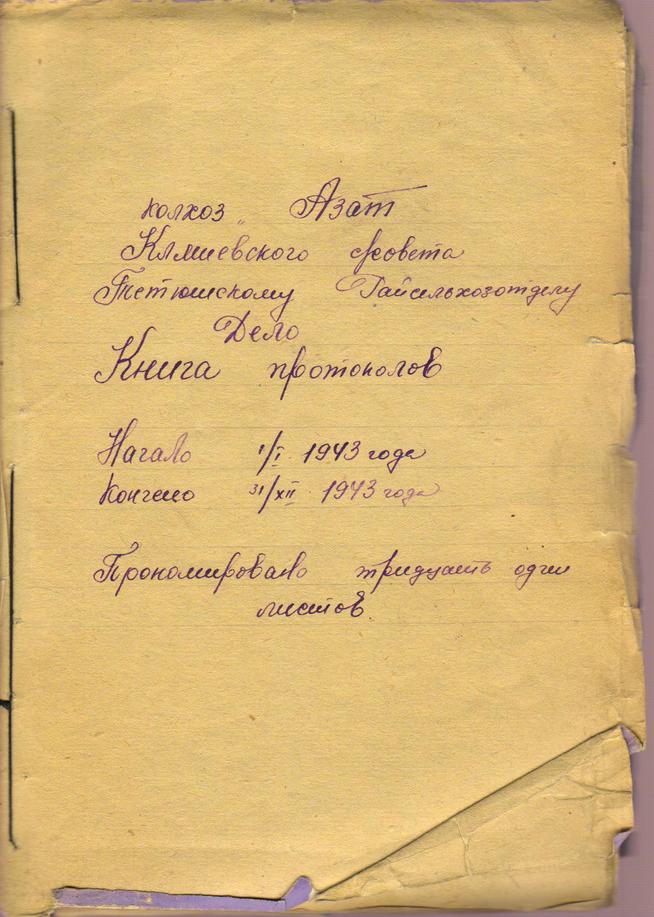 колхоз „ Азат
Клмиевского с/совета
Тетюшскому Райсельхозотделу
Дело
Книга протоколов
Начало 1/I. 1943 года
Кончено 31/XII 1943 года
Прономировано тридцать один
листов.